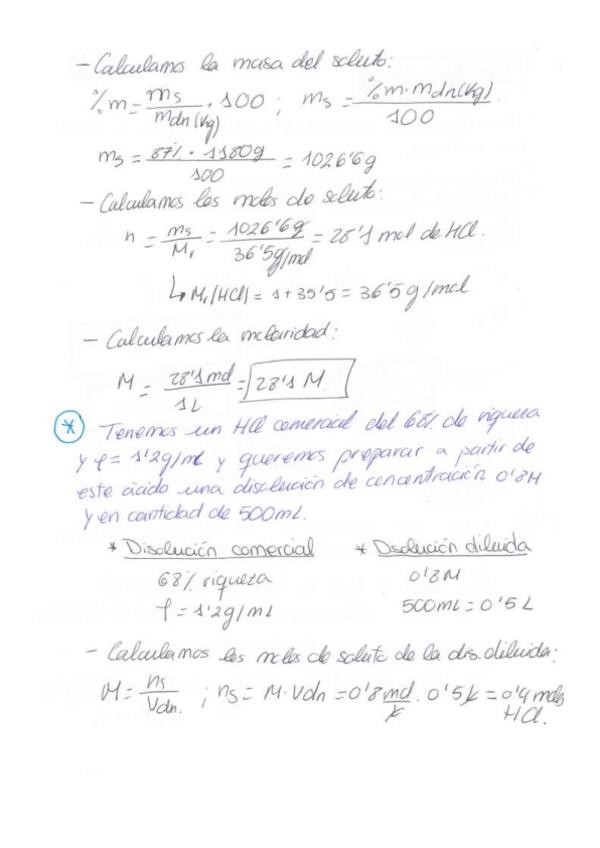 - Calculamos la masa del soluto:
%m = ms / mdn (Kg) · 100 ; ms = %m · mdn (Kg) / 100
ms = 87% · 1180g / 100 = 1026'6g
- Calculamos los moles de soluto:
n = ms / Mr = 1026'6g / 36'5g/mol = 28'1 mol de HCl.
↳ Mr(HCl) = 1+35'5 = 36'5 g/mol
- Calculamos la molaridad:
M = 28'1 mol / 1L = 28'1 M.
* Tenemos un HCl comercial del 68% de riqueza
y ρ = 1'2g/ml y queremos preparar a partir de
este ácido una disolución de concentración 0'8M
y en cantidad de 500mL.
* Disolución comercial * Dsolución diluida
68% riqueza 0'8M
ρ = 1'2g/mL 500mL = 0'5 L
- Calculamos los moles de soluto de la dis. diluida:
M = ns / Vdn. ; ns = M · Vdn = 0'8 mol / L · 0'5 L = 0'4 moles
HCl.